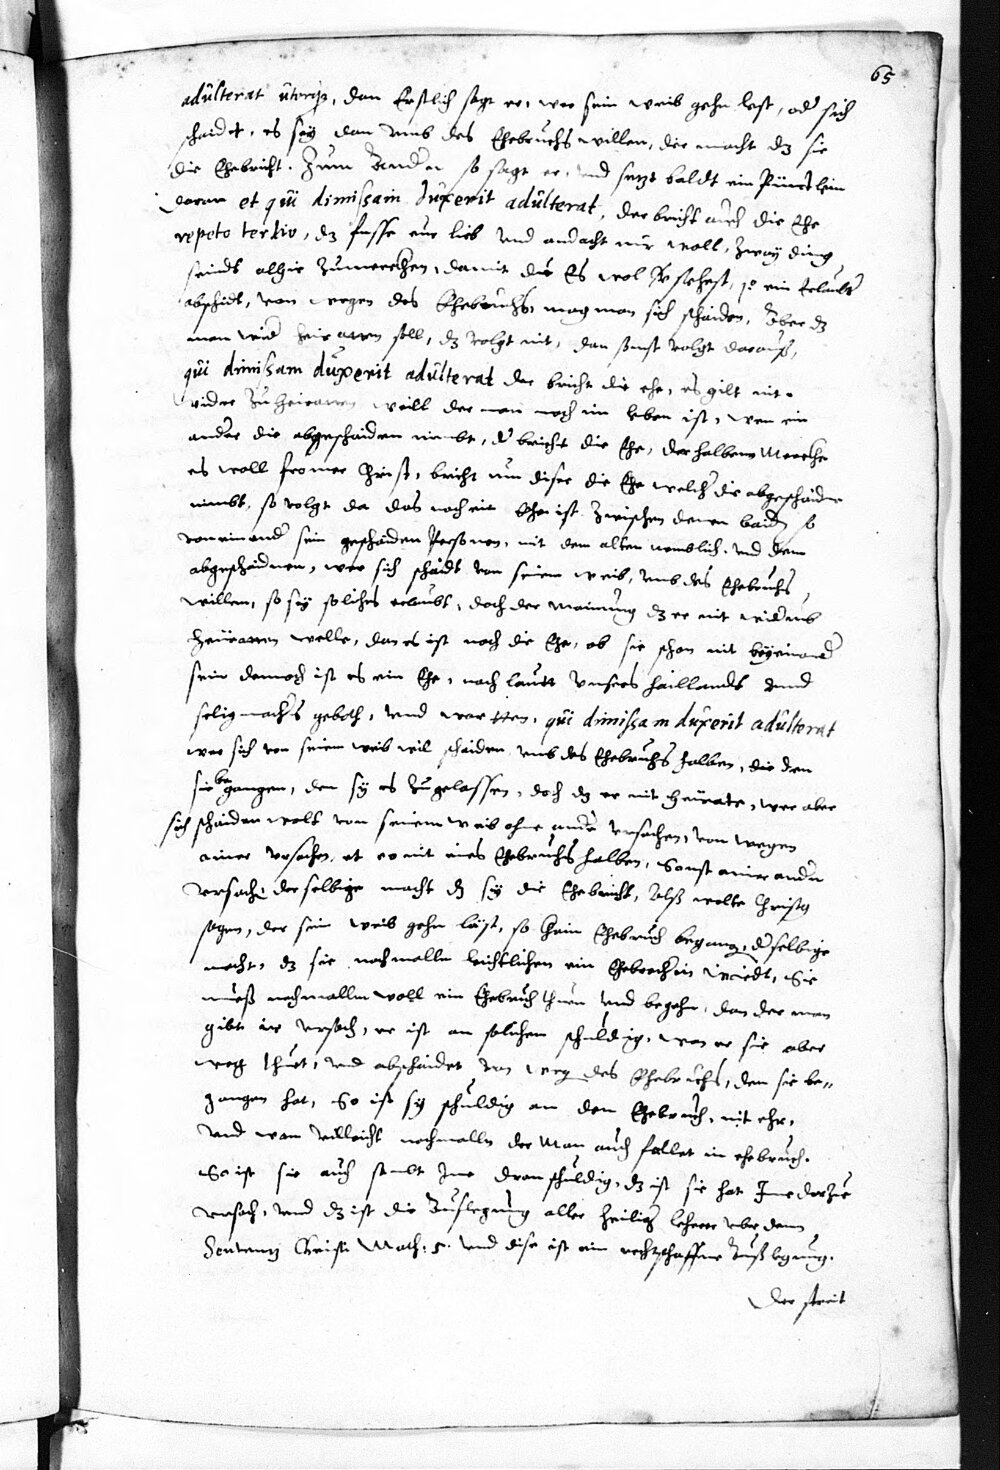 65
adulterat uterqz, dan Erstlich sagt er, wer sein weib gehn lest, od sich
schaidt, es sey dan umb des Ehebruchs willen, der macht dz sie
die Ehebricht. Zum Andern so sagt er, und setzt baldt ein Pünctlein
daran et qui dimissam duxerit adulterat, der bricht auch die Ehe
repeto tertio, dz fasse eur lieb und andacht nur woll, zway ding
seinds alhie zumerckhen, damit du Es wol verstehest, ein erlaubt
abschidt, von wegen des Ehebruchs, mag man sich schaiden, Aber dz
man wider heiraten soll, dz volgt nit, dan sonst volgt darauß,
qui dimissam duxerit adulterat der bricht die ehe, es gilt nit
wider zu heiraten weill der man noch im leben ist, wen ein
ander die abgeschaiden nimbt, d bricht die Ehe, derhalben Merckhe
es woll fromer Christ, bricht nun diser die Ehe welcher die abgeschaidne
nimbt, so volgt da das noch ein Ehe ist zwischen denen baiden so
voneinand sein geschaiden Personen, mit dem alten nemblich und dem
abgeschaidnen, wer sich schaidt von seinem weib, umb des Ehebruchs
willen, so sey solches erlaubt, doch der mainung dz er nit widerumb
heuraten welle, dan es ist noch die Ehe, ob sie schon nit beyeinand
sein dennoch ist es ein Ehe, nach lautt unsers haillands und
seligmachers geboth, und worten, qui dimissam duxerit adulterat
wer sich von seinem weib wil schaiden umb des Ehebruchs halben, die den
sie begangen, dem sy es zugelassen, doch dz er nit heurate, wer aber
sich schaiden wolt von seinem weib ohne andre ursachen, von wegen
ainer ursachen, et non nit eines Ehebruchs halben, Sonst ainer andern
ursach, derselbige macht dz sy die Ehebricht, Alß wolte Christus
sagen, der sein weib gehn läst, so khein Ehebruch begangen, d selbige
macht, dz sie nachmalln leichtlichen ein Ehebrecherin wierdt, Sie
mueß nachmalln woll ein Ehebruch thuen und begehn, dan der man
gibt ir ursach, er ist an solichem schuldig, wan er sie aber
weg thuet, und abschaidet von weg des Ehebruchs, den sie be„
gangen hat, So ist sy schuldig an dem Ehebruch, nit ehr,
und wan villeicht nachmalln der Man auch fellet in ehebruch.
So ist sie auch sambt Ime dran schuldig, dz ist sie hat Ime darzue
ursach, und dz ist die Auslegung aller heilige lehrer uber dem
Sentenz Christi Math: 5. und dise ist ein rechtschaffne Außlegung.
Der streit